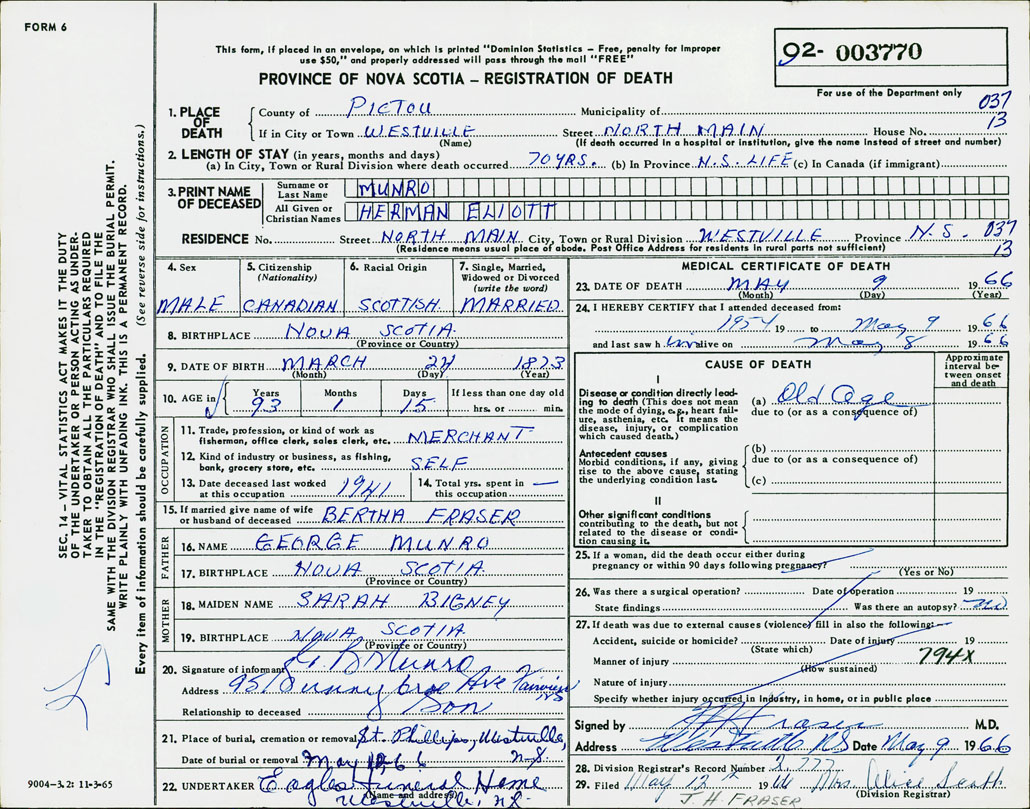 FORM 6
This form, if placed in an envelope, on which is printed "Dominion Statistics – Free, penalty for improper
use $50," and properly addressed will pass through the mail "FREE"
PROVINCE OF NOVA SCOTIA – REGISTRATION OF DEATH
92- 003770
For use of the Department only
037
13
1. PLACE OF DEATH
County of PICTOU Municipality of
If in City or Town WESTVILLE Street NORTH MAIN House No.
(Name) (If death occurred in a hospital or institution, give the name instead of street and number)
2. LENGTH OF STAY (in years, months and days)
(a) In City, Town or Rural Division where death occurred 70 YRS. (b) In Province N.S. LIFE (c) In Canada (if immigrant)
3. PRINT NAME OF DECEASED
Surname or Last Name MUNRO
All Given or Christian Names HERMAN ELIOTT
RESIDENCE No. Street NORTH MAIN City, Town or Rural Division WESTVILLE Province N.S. 037
(Residence means usual place of abode. Post Office Address for residents in rural parts not sufficient) 13
4. Sex
MALE
5. Citizenship (Nationality)
CANADIAN
6. Racial Origin
SCOTTISH
7. Single, Married, Widowed or Divorced (write the word)
MARRIED
8. BIRTHPLACE NOVA SCOTIA
(Province or Country)
9. DATE OF BIRTH MARCH 24 1873
(Month) (Day) (Year)
10. AGE in Years Months Days If less than one day old
93 1 15 hrs. or min.
OCCUPATION
11. Trade, profession, or kind of work as
fisherman, office clerk, sales clerk, etc. MERCHANT
12. Kind of industry or business, as fishing,
bank, grocery store, etc. SELF
13. Date deceased last worked
at this occupation 1941
14. Total yrs. spent in
this occupation —
15. If married give name of wife
or husband of deceased BERTHA FRASER
FATHER
16. NAME GEORGE MUNRO
17. BIRTHPLACE NOVA SCOTIA
(Province or Country)
MOTHER
18. MAIDEN NAME SARAH BIGNEY
19. BIRTHPLACE NOVA SCOTIA
(Province or Country)
20. Signature of informant Munro
Address Sunny brae Ave Fairview NS
Relationship to deceased Son
21. Place of burial, cremation or removal St. Phillips, Westville,
Date of burial or removal May 66 N.S.
22. UNDERTAKER Eagles Funeral Home
(Name and address) Westville, N.S.
MEDICAL CERTIFICATE OF DEATH
23. DATE OF DEATH MAY 9 1966
(Month) (Day) (Year)
24. I HEREBY CERTIFY that I attended deceased from:
1954 19 to May 9 1966
and last saw him alive on May 8 1966
CAUSE OF DEATH
Approximate interval between onset and death
I
Disease or condition directly leading to death (This does not mean the mode of dying, e.g., heart failure, asthenia, etc. It means the disease, injury, or complication which caused death.)
(a) Old Age
due to (or as a consequence of)
Antecedent causes
Morbid conditions, if any, giving rise to the above cause, stating the underlying condition last.
(b)
due to (or as a consequence of)
(c)
II
Other significant conditions
contributing to the death, but not related to the disease or condition causing it.
25. If a woman, did the death occur either during
pregnancy or within 90 days following pregnancy?
(Yes or No)
26. Was there a surgical operation? Date of operation 19
State findings Was there an autopsy? no
27. If death was due to external causes (violence) fill in also the following:
Accident, suicide or homicide? Date of injury 19
(State which)
Manner of injury 794X
(How sustained)
Nature of injury
Specify whether injury occurred in industry, in home, or in public place
Signed by Fraser M.D.
Address Westville NS Date May 9 1966
28. Division Registrar's Record Number 2,777
29. Filed May 12 1966 Mrs. Alice
(Division Registrar)
J. H. FRASER
SEC. 14 – VITAL STATISTICS ACT MAKES IT THE DUTY
OF THE UNDERTAKER OR PERSON ACTING AS UNDER-
TAKER TO OBTAIN ALL THE PARTICULARS REQUIRED
IN THE "REGISTRATION OF DEATH" AND TO FILE THE
SAME WITH THE DIVISION REGISTRAR WHO SHALL ISSUE THE BURIAL PERMIT.
WRITE PLAINLY WITH UNFADING INK. THIS IS A PERMANENT RECORD.
Every item of information should be carefully supplied. (See reverse side for instructions.)
9004-3.2: 11-3-65